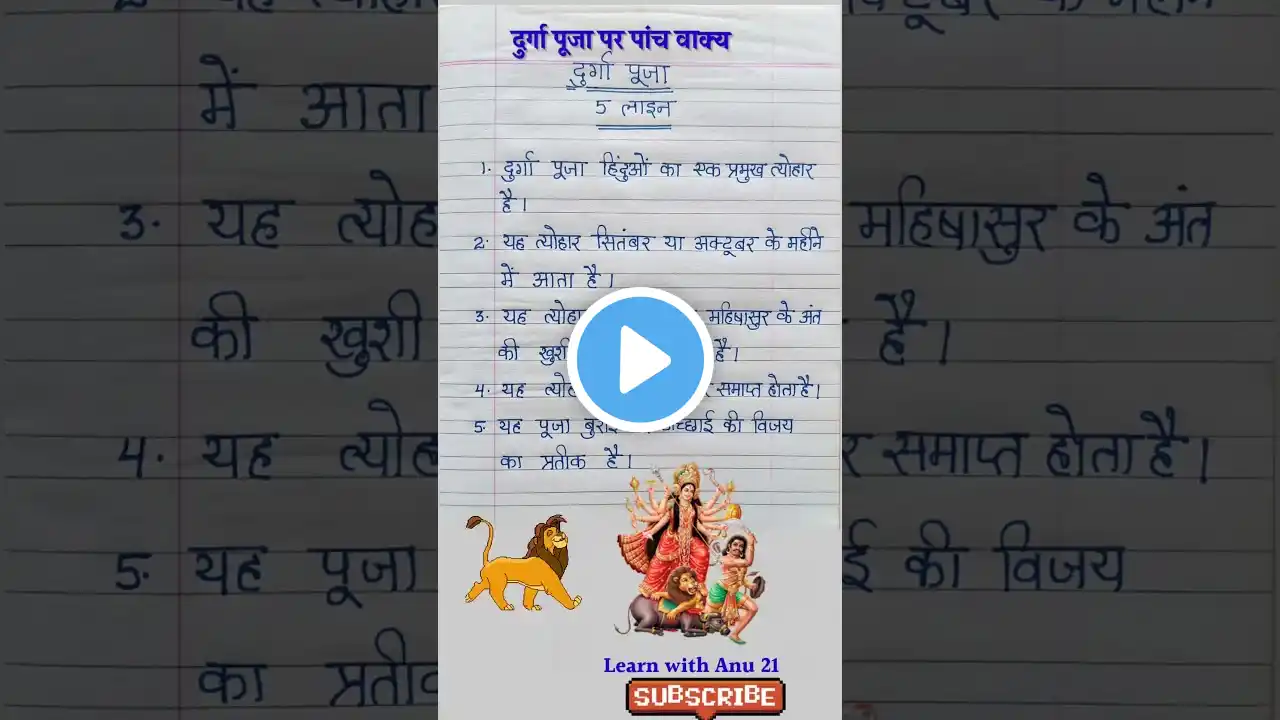 दुर्गा पूजा पर पांच वाक्य
दुर्गा पूजा
5 लाइन
1. दुर्गा पूजा हिंदुओं का एक प्रमुख त्योहार
है।
2. यह त्योहार सितंबर या अक्टूबर के महीने
में आता है।
3. यह महिषासुर के अंत
की खुशी है।
4. यह समाप्त होता है।
5. यह पूजा की विजय
का प्रतीक है।
Learn with Anu 21
SUBSCRIBE